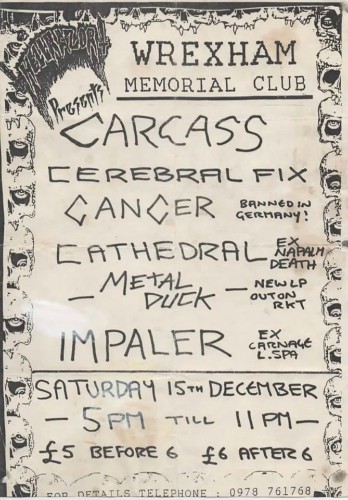 Presents
WREXHAM
MEMORIAL CLUB
CARCASS
CEREBRAL FIX
CANCER
BANNED IN
GERMANY!
CATHEDRAL
EX
NAPALM
DEATH
— METAL
DUCK —
NEW LP
OUT ON
RKT
IMPALER
EX
CARNAGE
L.SPA
SATURDAY 15TH DECEMBER
— 5PM TILL 11PM —
£5 BEFORE 6 £6 AFTER 6
FOR DETAILS TELEPHONE : 0978 761768